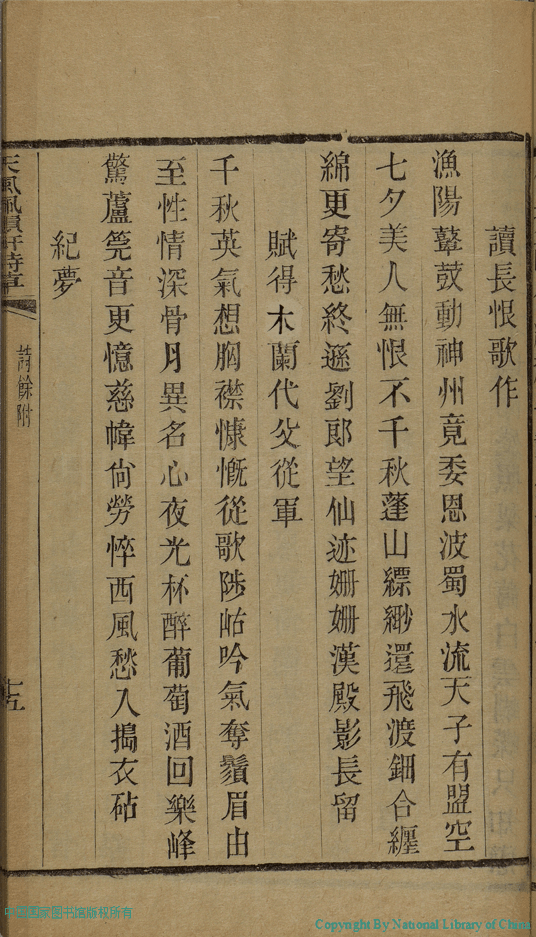 讀長恨歌作
漁陽鼙鼓動神州竟委恩波蜀水流天子有盟空
七夕美人無恨不千秋蓬山縹緲還飛渡鈿合纏
綿更寄愁終遜劉郎望仙迹姍姍漢殿影長留
賦得木蘭代父從軍
千秋英氣想胸襟慷慨從歌陟岵吟氣奪鬚眉由
至性情深骨月異名心夜光杯醉葡萄酒回樂峰
驚蘆筦音更憶慈幃尙勞悴西風愁入搗衣砧
紀夢
詩餘附
十五
中国国家图书馆版权所有
Copyright By National Library of China